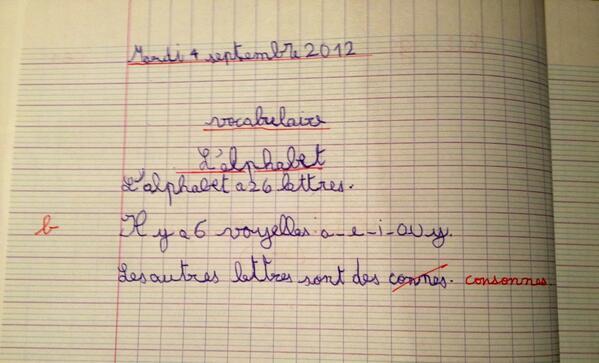 Mardi 4 septembre 2012
vocabulaire
L'alphabet
L'alphabet a 26 lettres.
b Il y a 6 voyelles: a-e-i-o u y.
Les autres lettres sont des connes. consonnes.